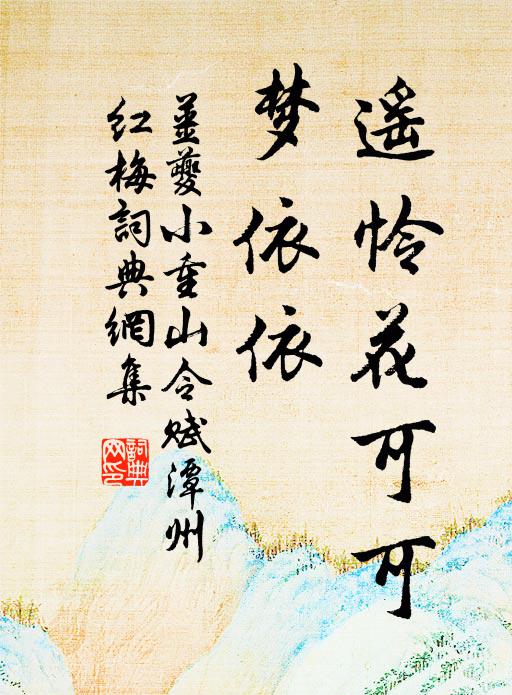 遥怜花可可
梦依依
姜夔小重山令赋潭州
红梅詞典網集
詞典网印